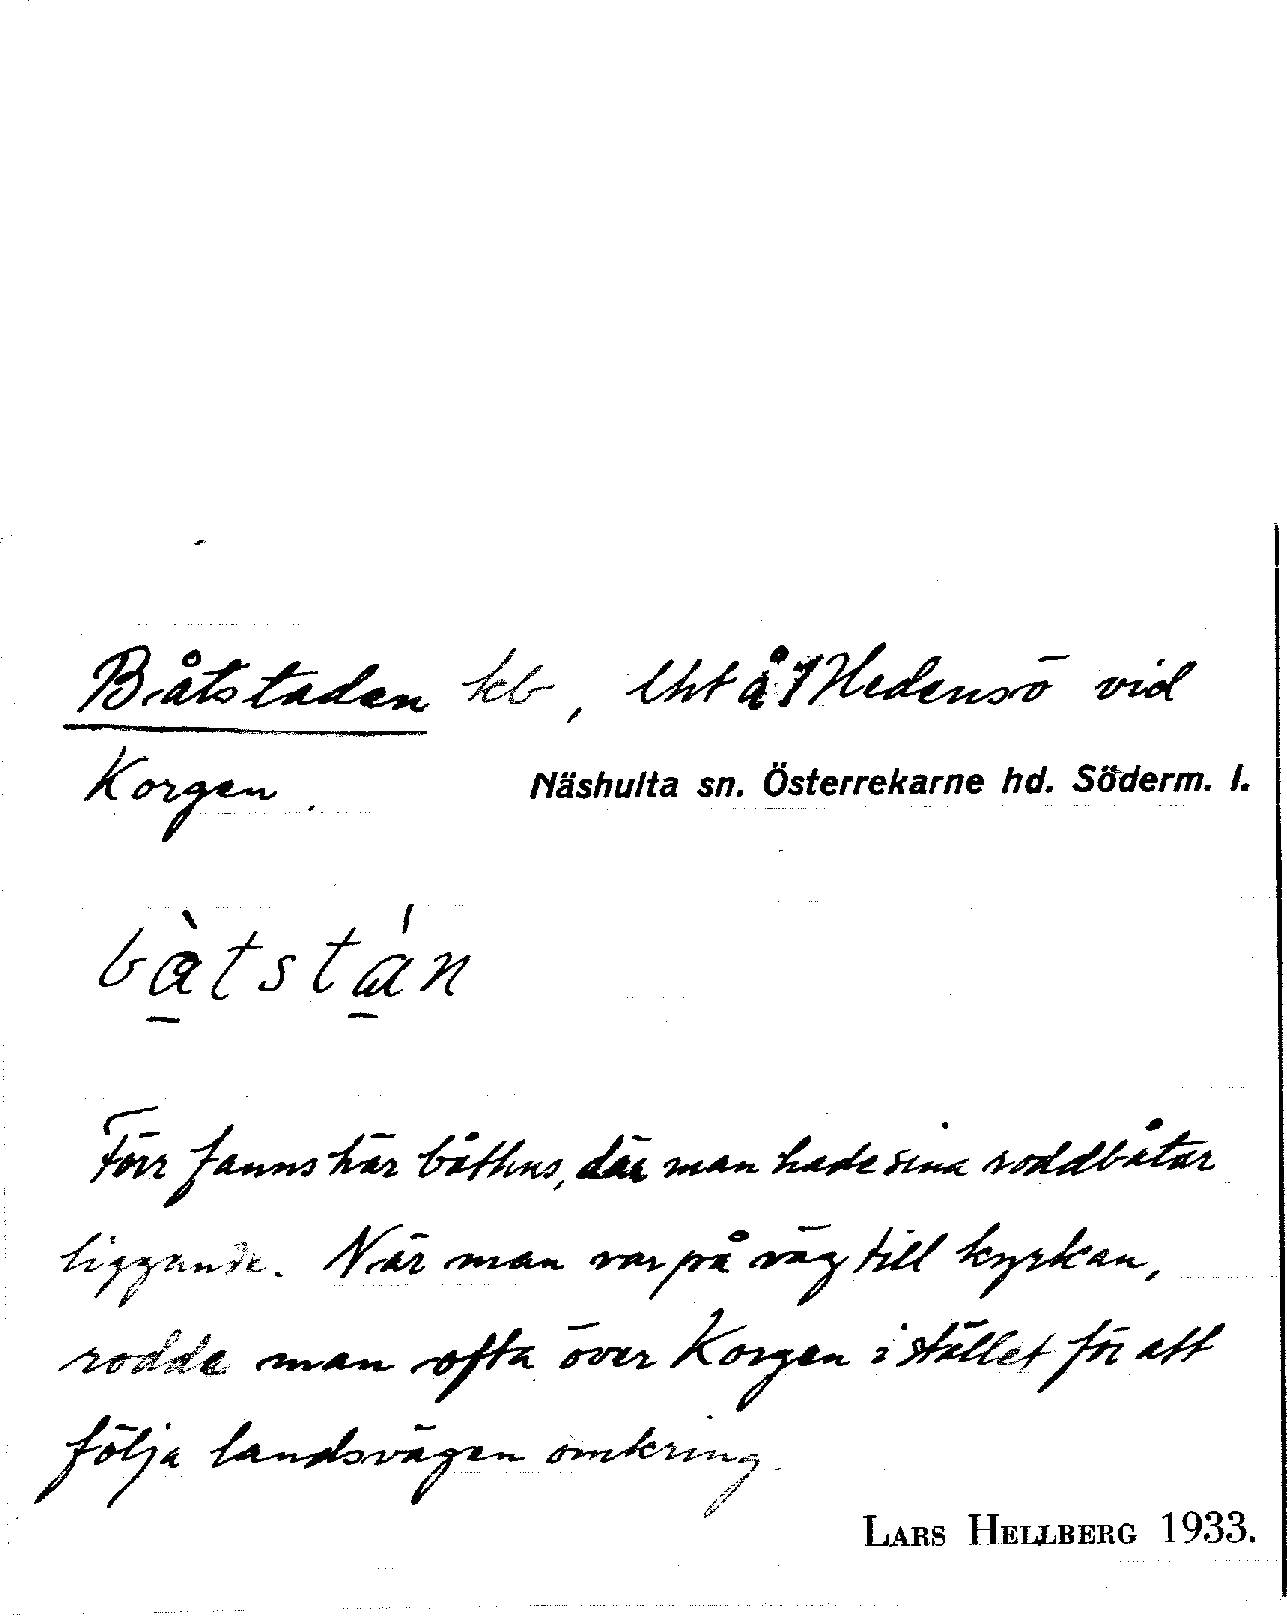 Båtstaden kb, lht å Hedensö vid
Korgen.
Näshulta sn. Österrekarne hd. Söderm. l.
bàtstán
Förr fanns här båthus, där man hade sina roddbåtar
liggande. När man var på väg till kyrkan,
rodde man ofta över Korgen i stället för att
följa landsvägen omkring.
LARS HELLBERG 1933.